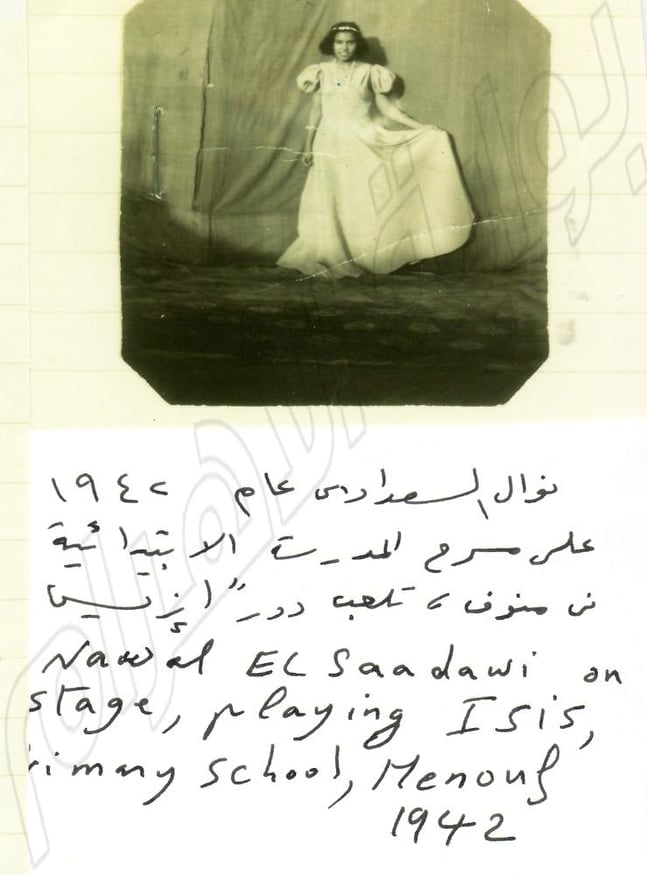 نوال السعداوى عام ١٩٤٢
على مسرح المدرسة الابتدائية
فى منوف، تلعب دور "إزيس
Nawal EL Saadawi on
stage, playing Isis,
rimary School, Menouf
1942
بوابة الأهرام